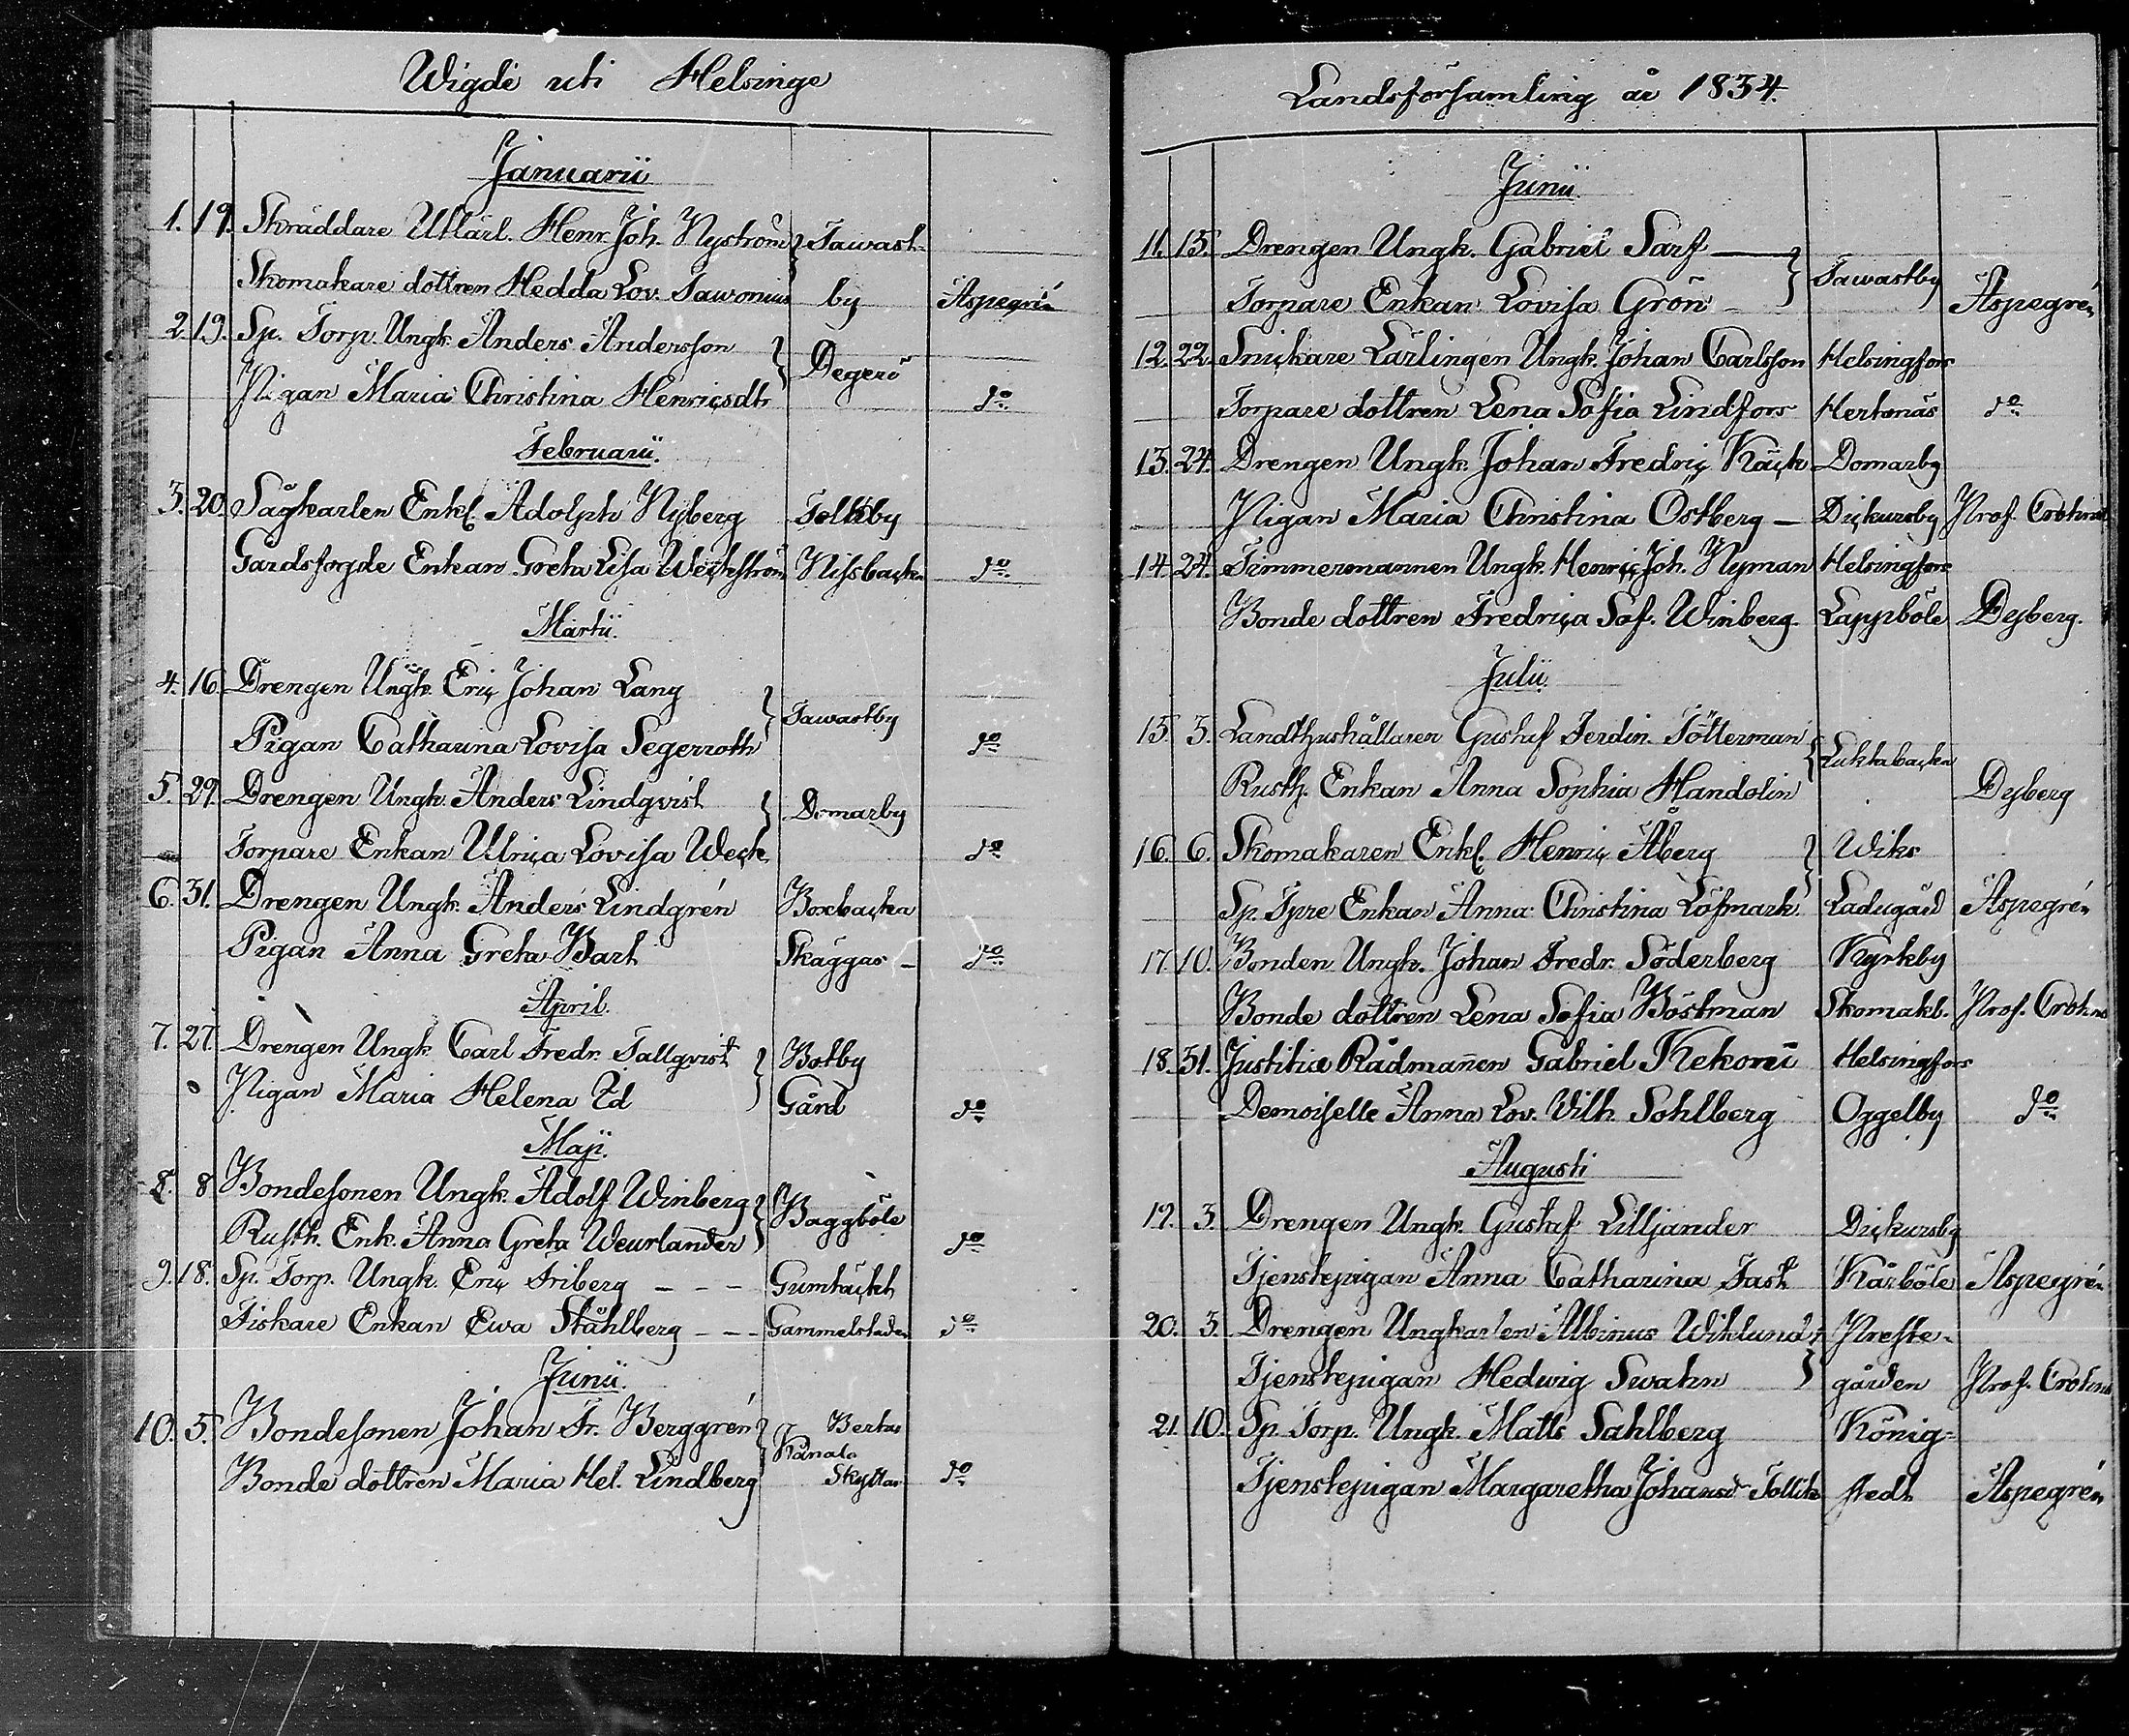 Wigde uti Helsinge
Januarii
1. 19. Skräddare Utlärl. Henr. Joh. Nyström Tawast-
Skomakare dottren Hedda Lov. Sawonius by Aspegrén
2. 19. Sp. Torp. Ungk. Anders Andersson
Degerö
Pigan Maria Christina Henricsdtr do
Februarii.
3. 20. Sågkarlen Enkl. Adolph Nyberg Tolkby
Gårdsfogde Enkan Greta Lisa Weckström Nissbacka do
Martii.
4. 16. Drengen Ungk. Eric Johan Lang
Tawastby
Pigan Catharina Lovisa Segerroth do
5. 29. Drengen Ungk. Anders Lindqvist
Domarby
Torpare Enkan Ulrica Lovisa Weck do
6. 31. Drengen Ungk. Anders Lindgrén Boxbacka
Pigan Anna Greta Bart Skäggas – do
April.
7. 27. Drengen Ungk. Carl Fredr. Tallqvist Botby
Pigan Maria Helena Id Gård do
Maji.
8. 8 Bondesonen Ungk. Adolf Winberg
Baggböle
Rusth. Enk. Anna Greta Weurlander do
9. 18. Sp. Torp. Ungk. Eric Friberg – – – Gumtäckt
Fiskare Enkan Ewa Ståhlberg – – – Gammelstaden do
Junii.
10. 5. Bondesonen Johan Fr. Berggrén Bertas
Kånala
Bonde dottren Maria Hel. Lindberg Skyttas do
Landsförsamling år 1834.
Junii
11. 15. Drengen Ungk. Gabriel Sarf —
Tawastby
Torpare Enkan Lovisa Grön – Aspegrén
12. 22. Snickare Lärlingen Ungk. Johan Carlsson Helsingfors
Torpare dottren Lena Sofia Lindfors Hertonäs do
13. 24. Drengen Ungk. Johan Fredric Käck Domarby
Pigan Maria Christina Östberg – Dickursby Prof. Crohns
14. 24. Timmermannen Ungk. Henric Joh. Nyman Helsingfors
Bonde dottren Fredrica Sof. Winberg. Lappböle Dyberg.
Julii.
15. 3. Landthushållaren Gustaf Ferdin. Tötterman
Luktabacka
Rusth. Enkan Anna Sophia Handolin Dyberg
16. 6. Skomakaren Enkl. Henric Åberg Wiks
Sp. Tpre Enkan Anna Christina Löfmark Ladugård Aspegrén
17. 10. Bonden Ungk. Johan Fredr. Söderberg Kyrkby
Bonde dottren Lena Sofia Böstman Skomakb. Prof. Crohns
18. 31. Justitiæ Rådmannen Gabriel Kekoni Helsingfors
Demoiselle Anna Lov. Wilh. Sohlberg Oggelby do
Augusti
19. 3. Drengen Ungk. Gustaf Lilljander Dickursby
Tjenstepigan Anna Catharina Fast Kårböle Aspegrén
20. 3. Drengen Ungkarlen Albinus Wiklund Preste-
Tjenstepigan Hedwig Swahn gården Prof. Crohns
21. 10. Sp. Torp. Ungk. Matts Sahlberg König-
Tjenstepigan Margaretha Johansd. stedt Aspegrén